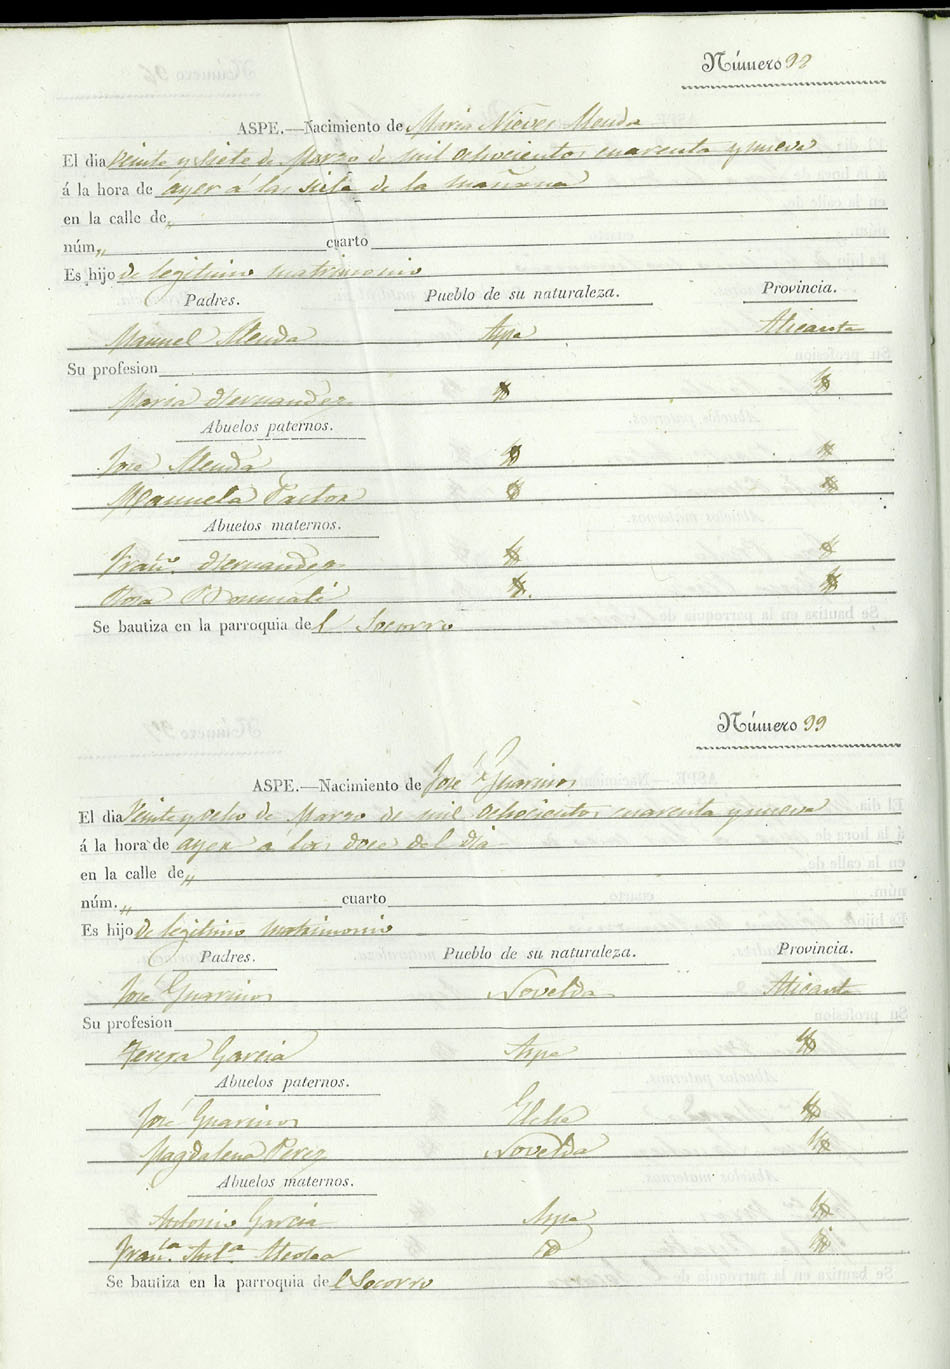 Número 98
ASPE.—Nacimiento de Maria Nieves Alenda
El dia Veinte y siete de Marzo de mil ochocientos cuarenta y nueve
á la hora de ayer á las siete de la mañana
en la calle de „
núm. „ cuarto
Es hijo de legitimo matrimonio
Padres. Pueblo de su naturaleza. Provincia.
Manuel Alenda Aspe Alicante
Su profesion
Maria Hernandez
Abuelos paternos.
José Alenda
Manuela Pastor
Abuelos maternos.
Franco. Hernandez
Rosa
Se bautiza en la parroquia del Socorro
Número 99
ASPE.—Nacimiento de José Guarinos
El dia Veinte y ocho de Marzo de mil ochocientos cuarenta y nueve
á la hora de ayer á las doce del dia
en la calle de „
núm. „ cuarto
Es hijo de legitimo matrimonio
Padres. Pueblo de su naturaleza. Provincia.
José Guarinos Novelda Alicante
Su profesion
Teresa Garcia Aspe
Abuelos paternos.
José Guarinos Elche
Magdalena Perez Novelda
Abuelos maternos.
Antonio Garcia Aspe
Franca. Anta. id
Se bautiza en la parroquia del Socorro